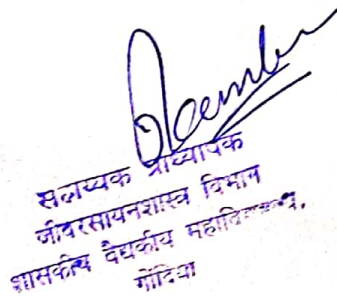 सहाय्यक प्राध्यापक
जीवरसायनशास्त्र विभाग
शासकीय वैद्यकीय महाविद्यालय,
गोंदिया